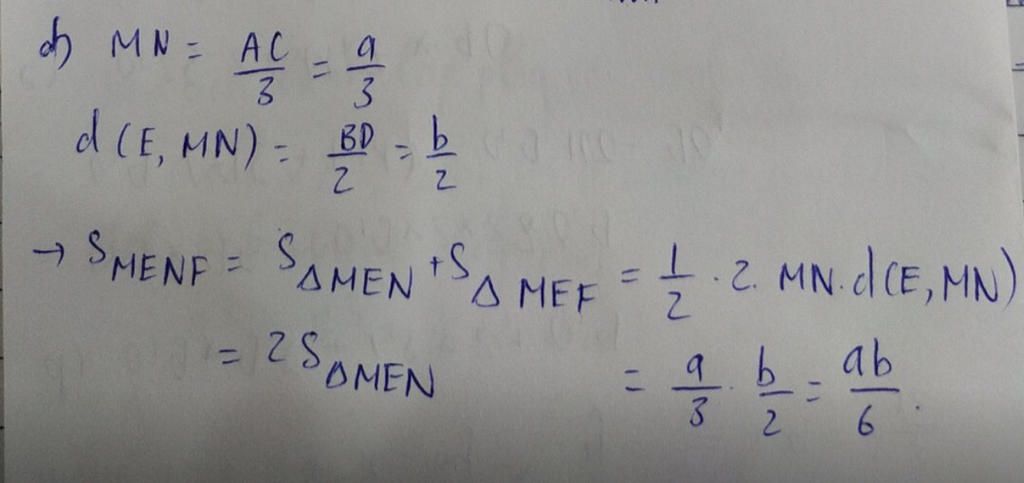 d) MN = AC/3 = a/3
d(E, MN) = BD/2 = b/2
→ S_MENF = S_ΔMEN + S_ΔMEF = 1/2 . 2. MN. d(E, MN)
= 2S_ΔMEN = a/3 . b/2 = ab/6 .